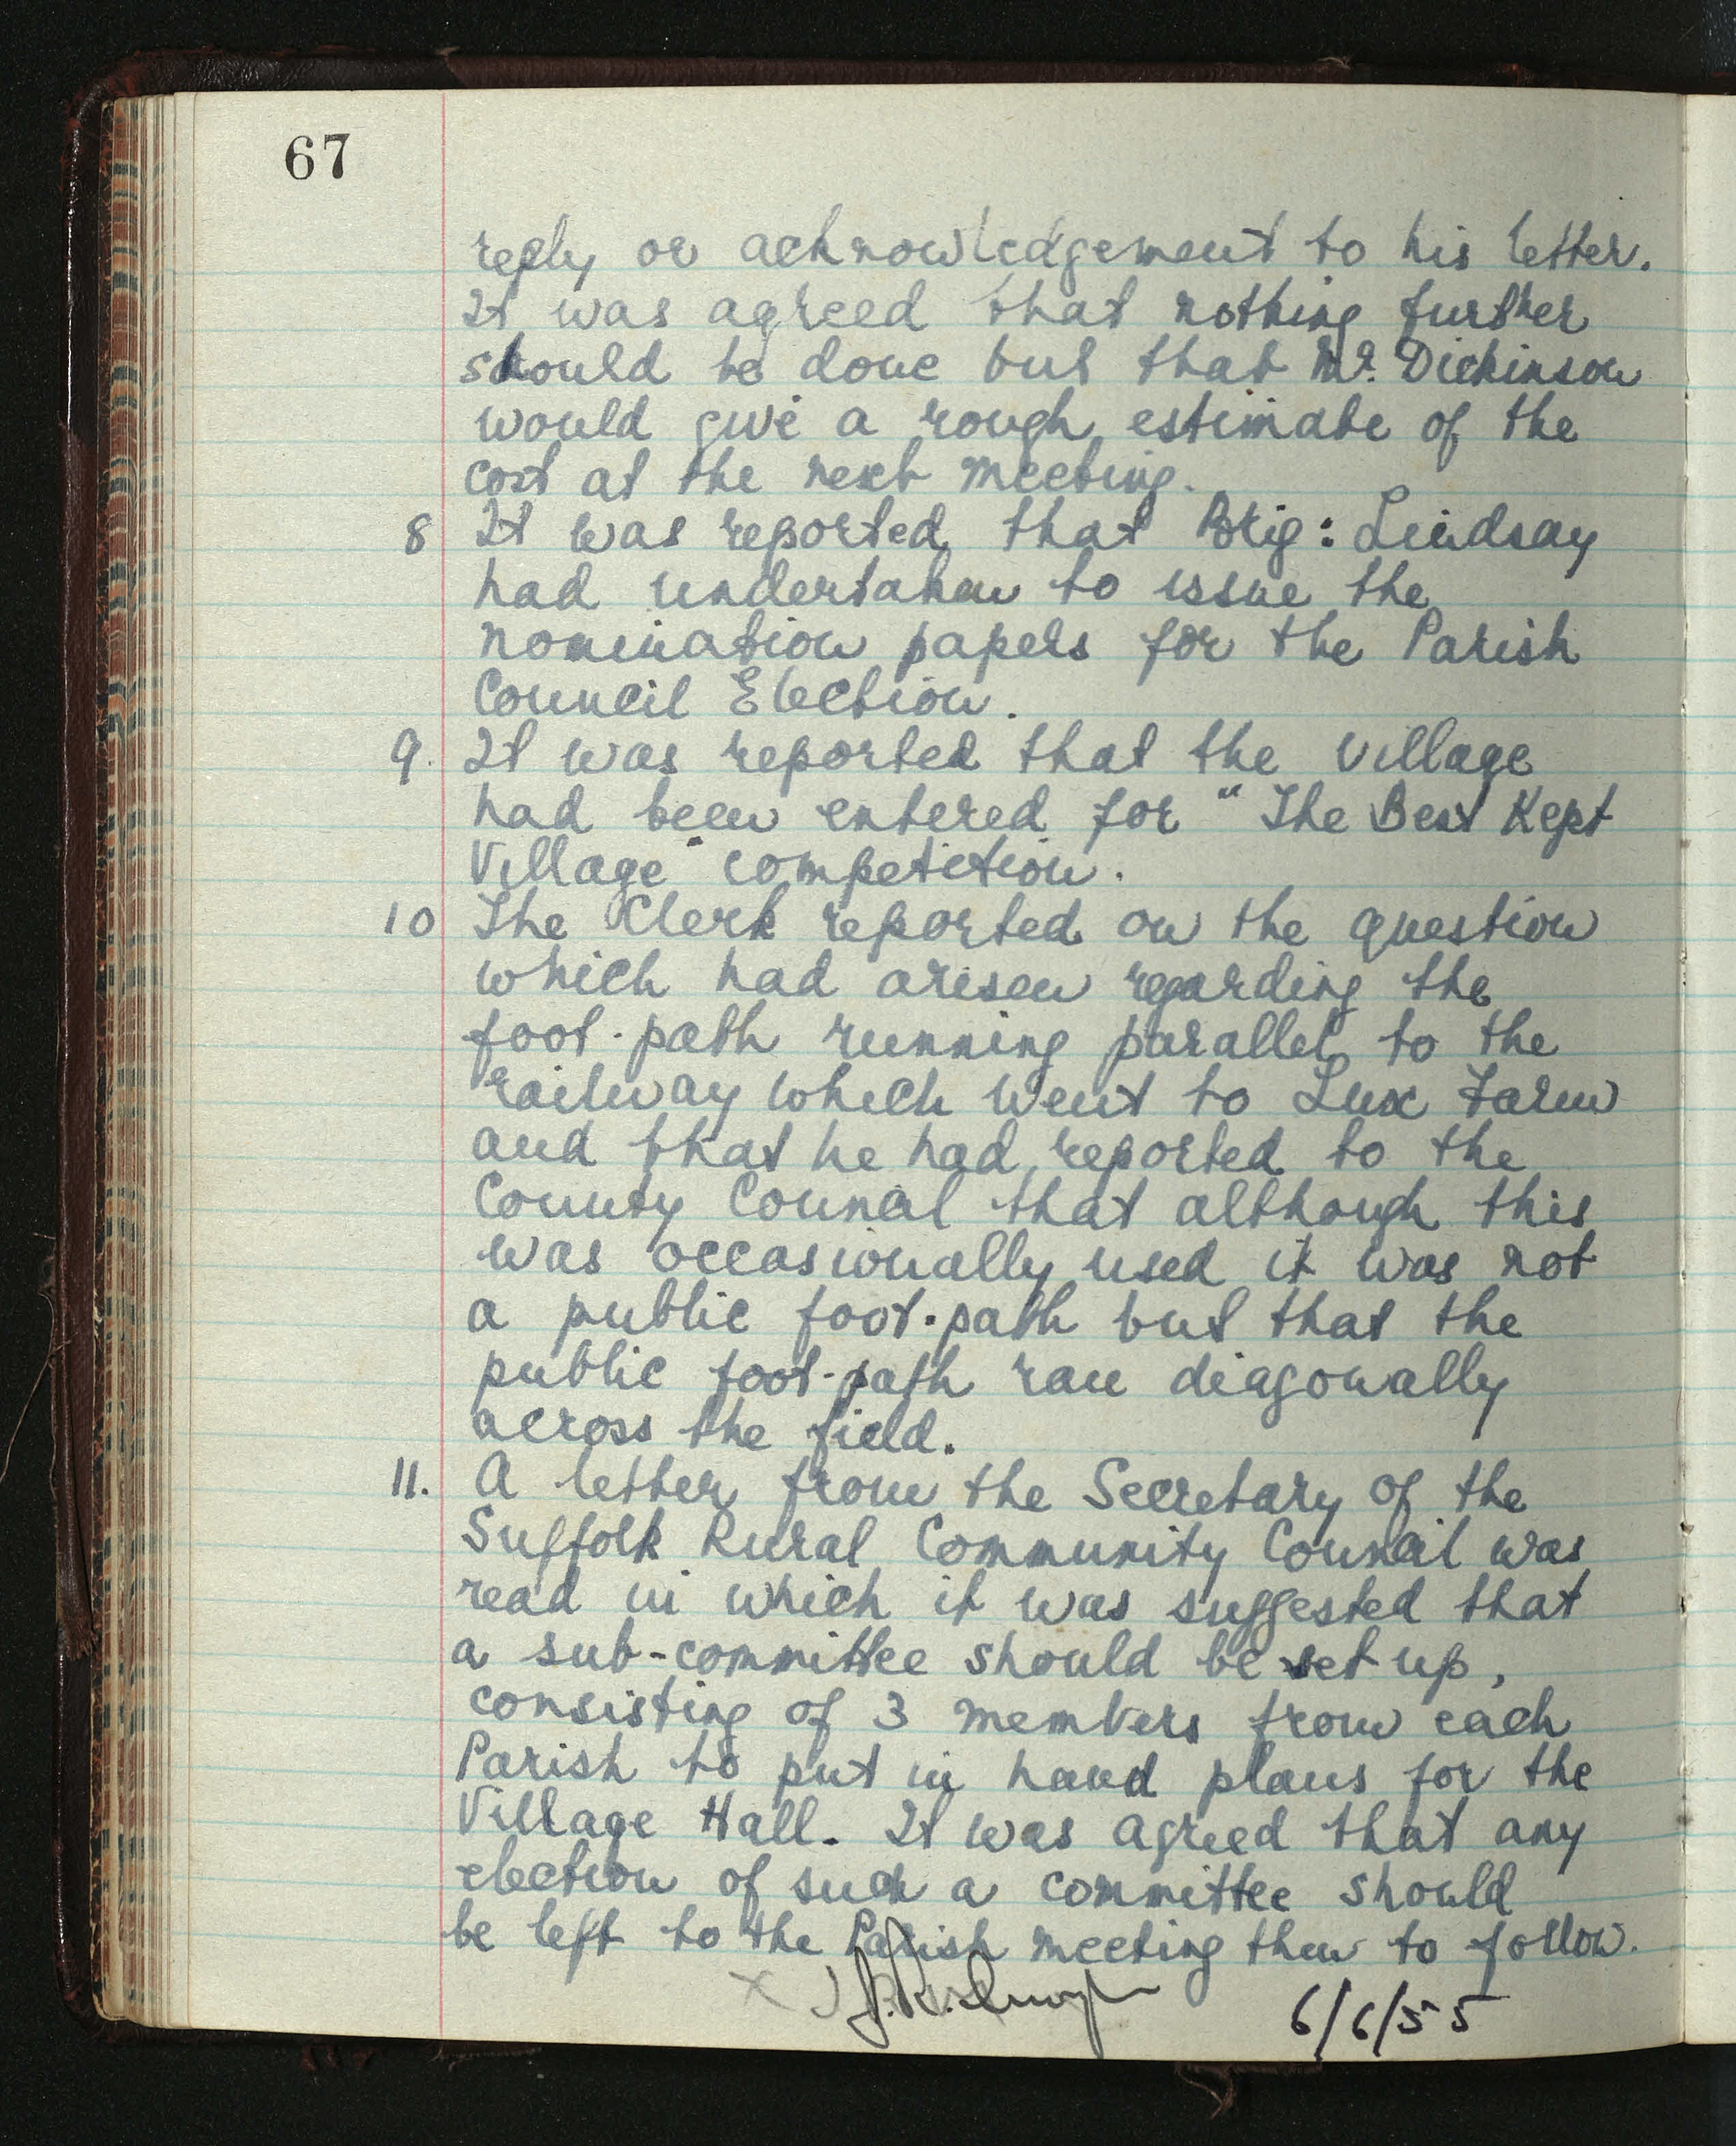 67
reply or acknowledgement to his letter.
It was agreed that nothing further
should be done but that Mr. Dickinson
would give a rough estimate of the
cost at the next meeting.
8 It was reported that Brig: Lindsay
had undertaken to issue the
nomination papers for the Parish
Council Election.
9. It was reported that the Village
had been entered for "The Best Kept
Village" competition.
10 The Clerk reported on the question
which had arisen regarding the
foot-path running parallel to the
railway which went to Lux Farm
and that he had reported to the
County Council that although this
was occasionally used it was not
a public foot-path but that the
public foot-path ran diagonally
across the field.
11. A letter from the Secretary of the
Suffolk Rural Community Council was
read in which it was suggested that
a sub-committee should be set up,
consisting of 3 members from each
Parish to put in hand plans for the
Village Hall. It was agreed that any
election of such a committee should
be left to the Parish meeting then to follow.
6/6/55